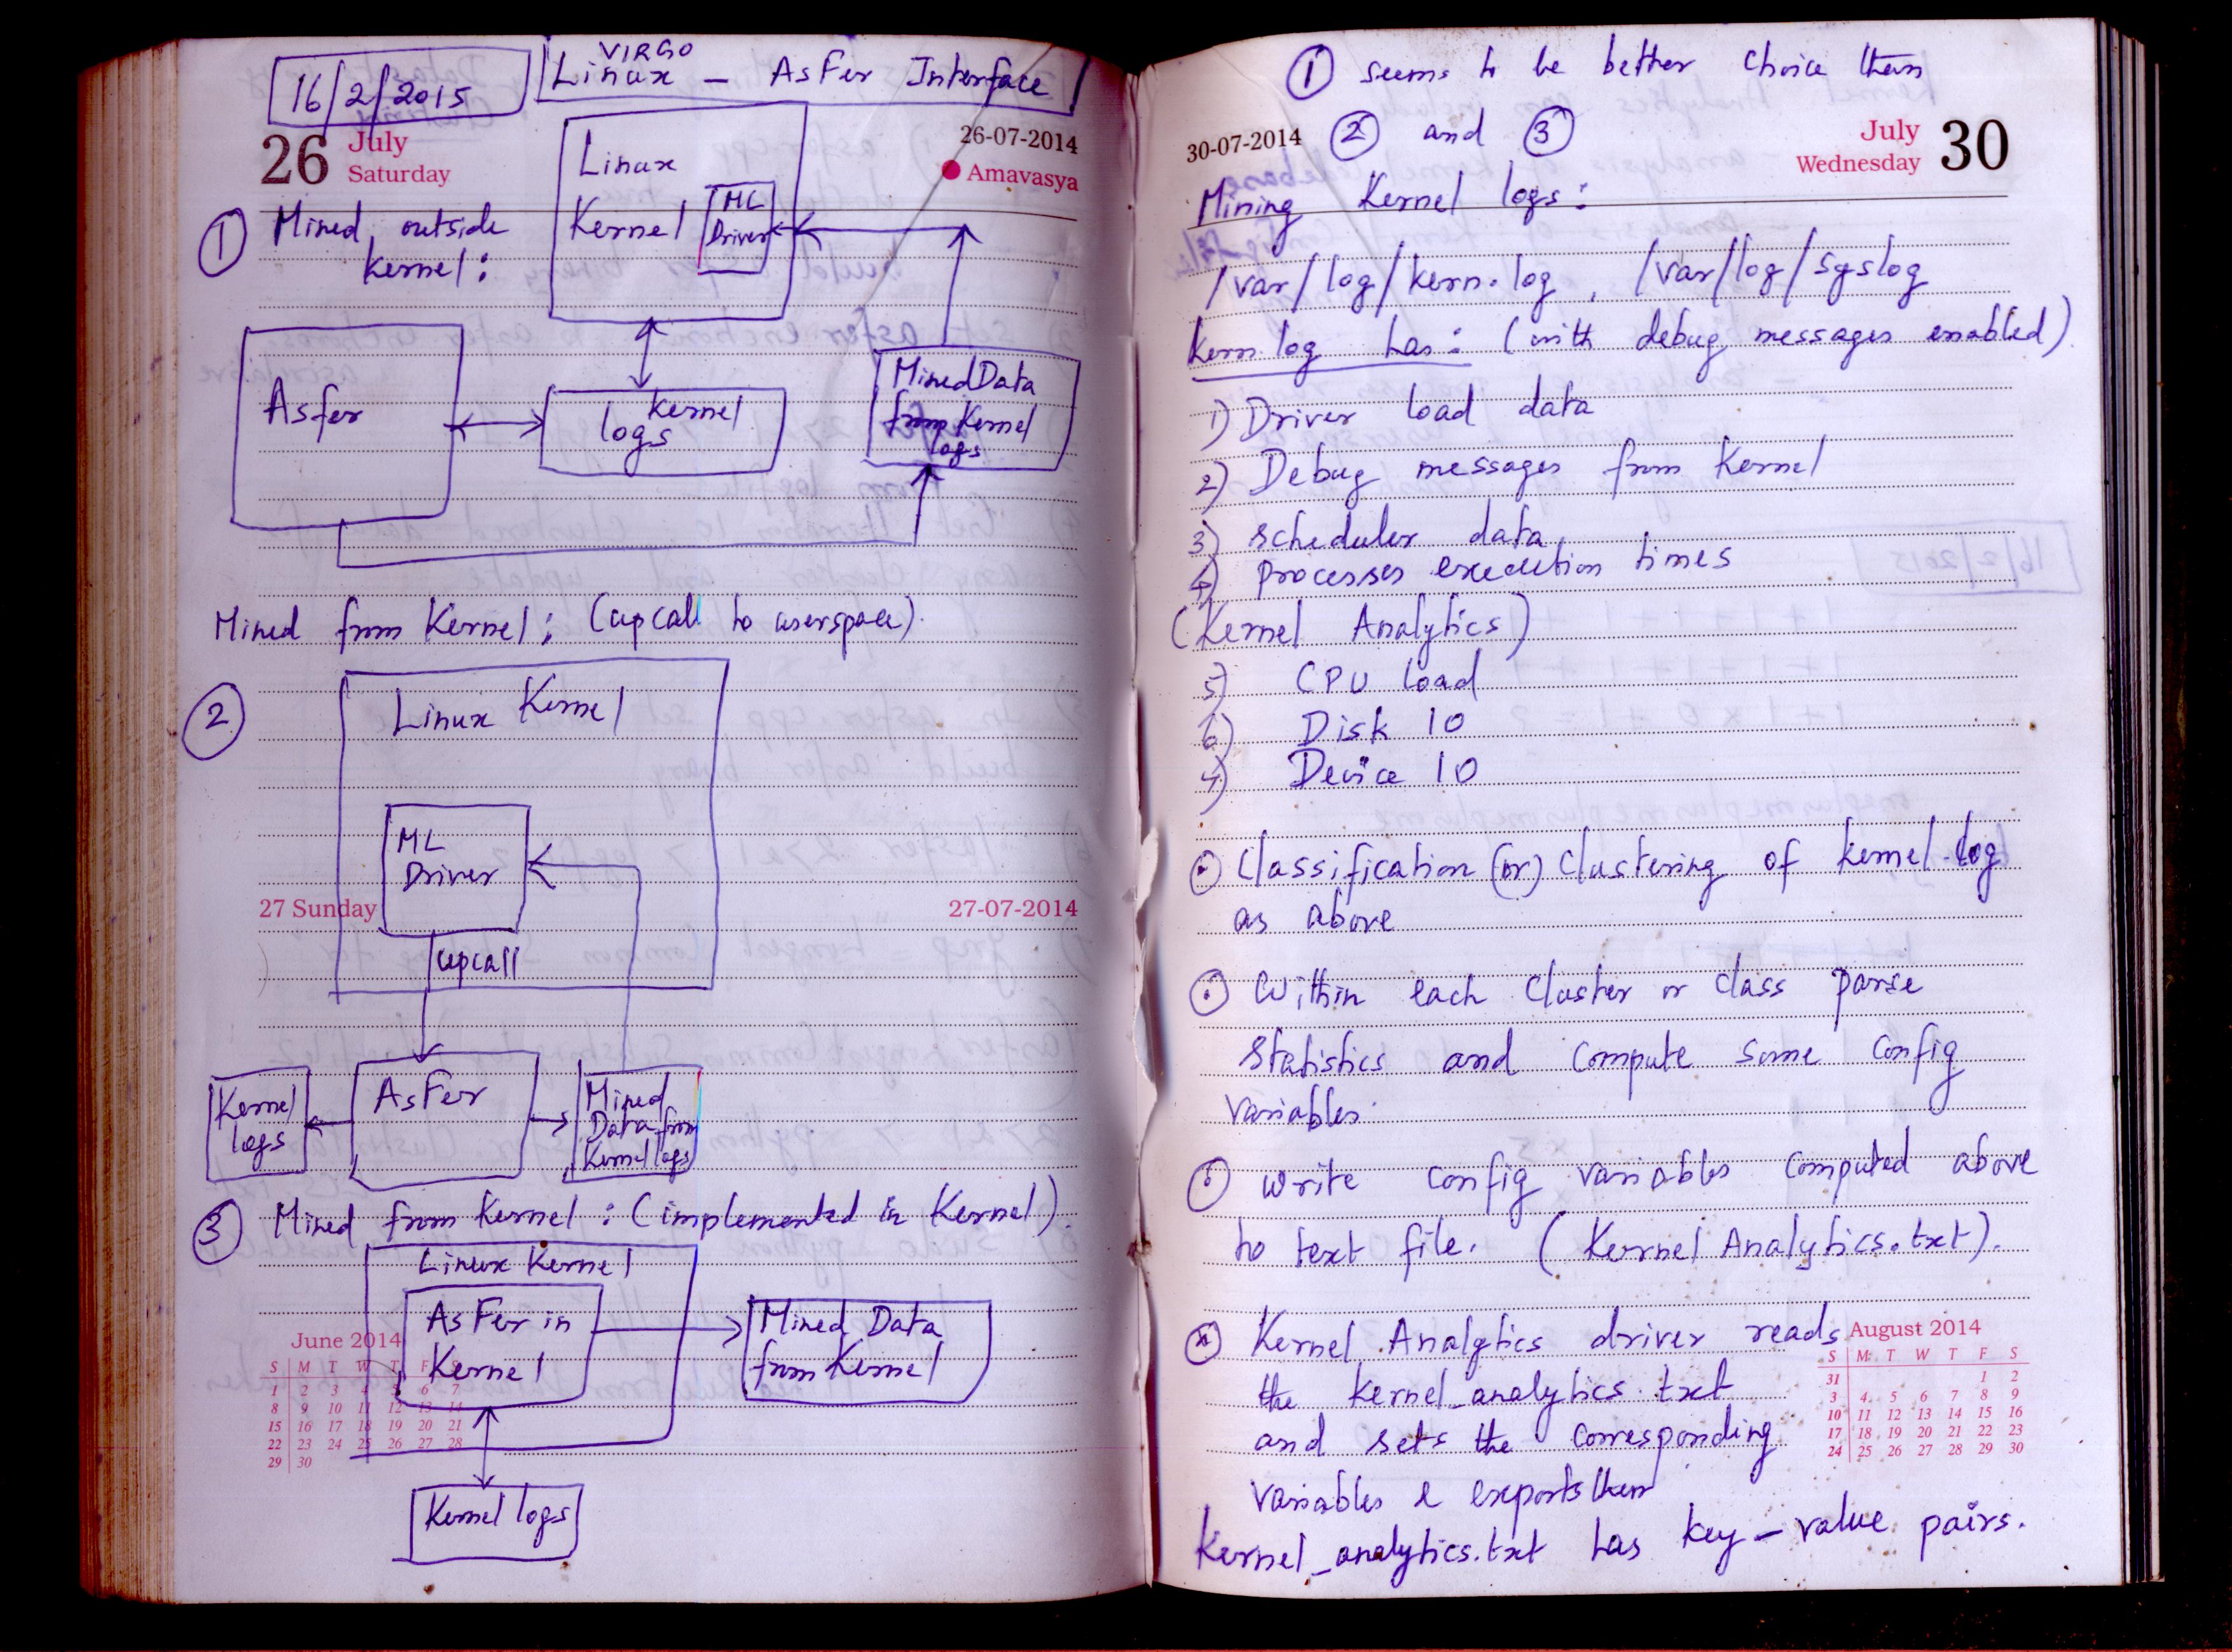 16/2/2015
VIRGO
Linux - AsFer Interface
26 July
Saturday
26-07-2014
Amavasya
Linux
Kernel
ML
Driver
① Mined outside
kernel:
Asfer
kernel
logs
Mined Data
from Kernel
logs
Mined from Kernel: (upcall to userspace).
②
Linux Kernel
ML
Driver
27 Sunday
27-07-2014
upcall
Kernel
logs
AsFer
Mined
Data from
Kernel logs
③ Mined from Kernel: (implemented in Kernel).
Linux Kernel
AsFer in
Kernel
Mined Data
from Kernel
June 2014
S M T W T F S
1 2 3 4 5 6 7
8 9 10 11 12 13 14
15 16 17 18 19 20 21
22 23 24 25 26 27 28
29 30
Kernel logs
① seems to be better choice than
② and ③
30-07-2014
July
Wednesday 30
Mining Kernel logs:
/var/log/kern.log, /var/log/syslog
kern.log has: (with debug messages enabled)
1) Driver load data
2) Debug messages from Kernel
3) scheduler data
4) processes execution times
(Kernel Analytics)
5) CPU load
6) Disk IO
7) Device IO
Classification (or) Clustering of kernel.log
as above
Within each cluster or class parse
statistics and compute some config
variables.
write config variables computed above
to text file. (Kernel Analytics.txt).
Kernel Analytics driver reads
the kernel_analytics.txt
and sets the corresponding
variables & exports them
Kernel_analytics.txt has key-value pairs.
August 2014
S M T W T F S
31 1 2
3 4 5 6 7 8 9
10 11 12 13 14 15 16
17 18 19 20 21 22 23
24 25 26 27 28 29 30